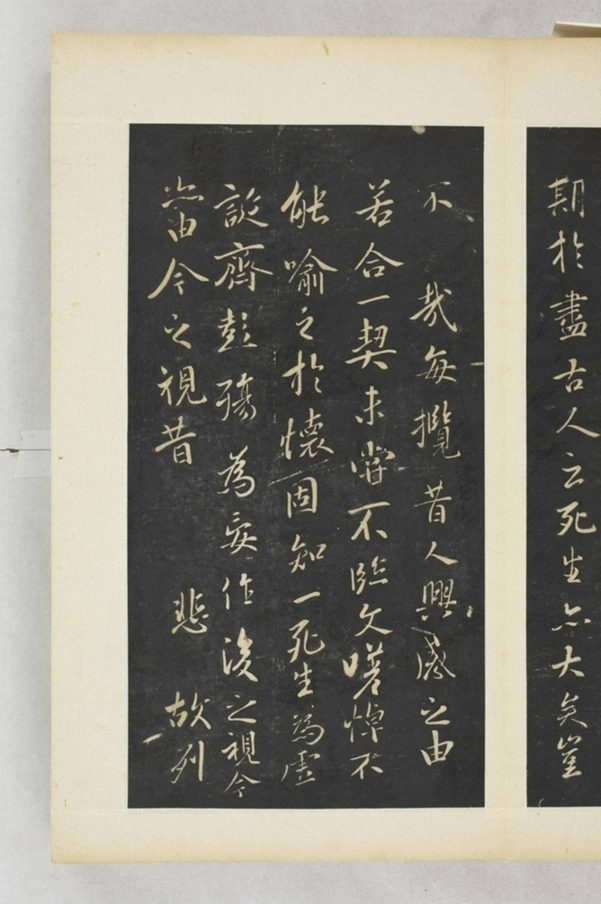 期於盡古人云死生亦大矣豈
不 哉每攬昔人興感之由
若合一契未嘗不臨文嗟悼不
能喻之於懷固知一死生為虛
誕齊彭殤為妄作後之視今
亦由今之視昔 悲 故列